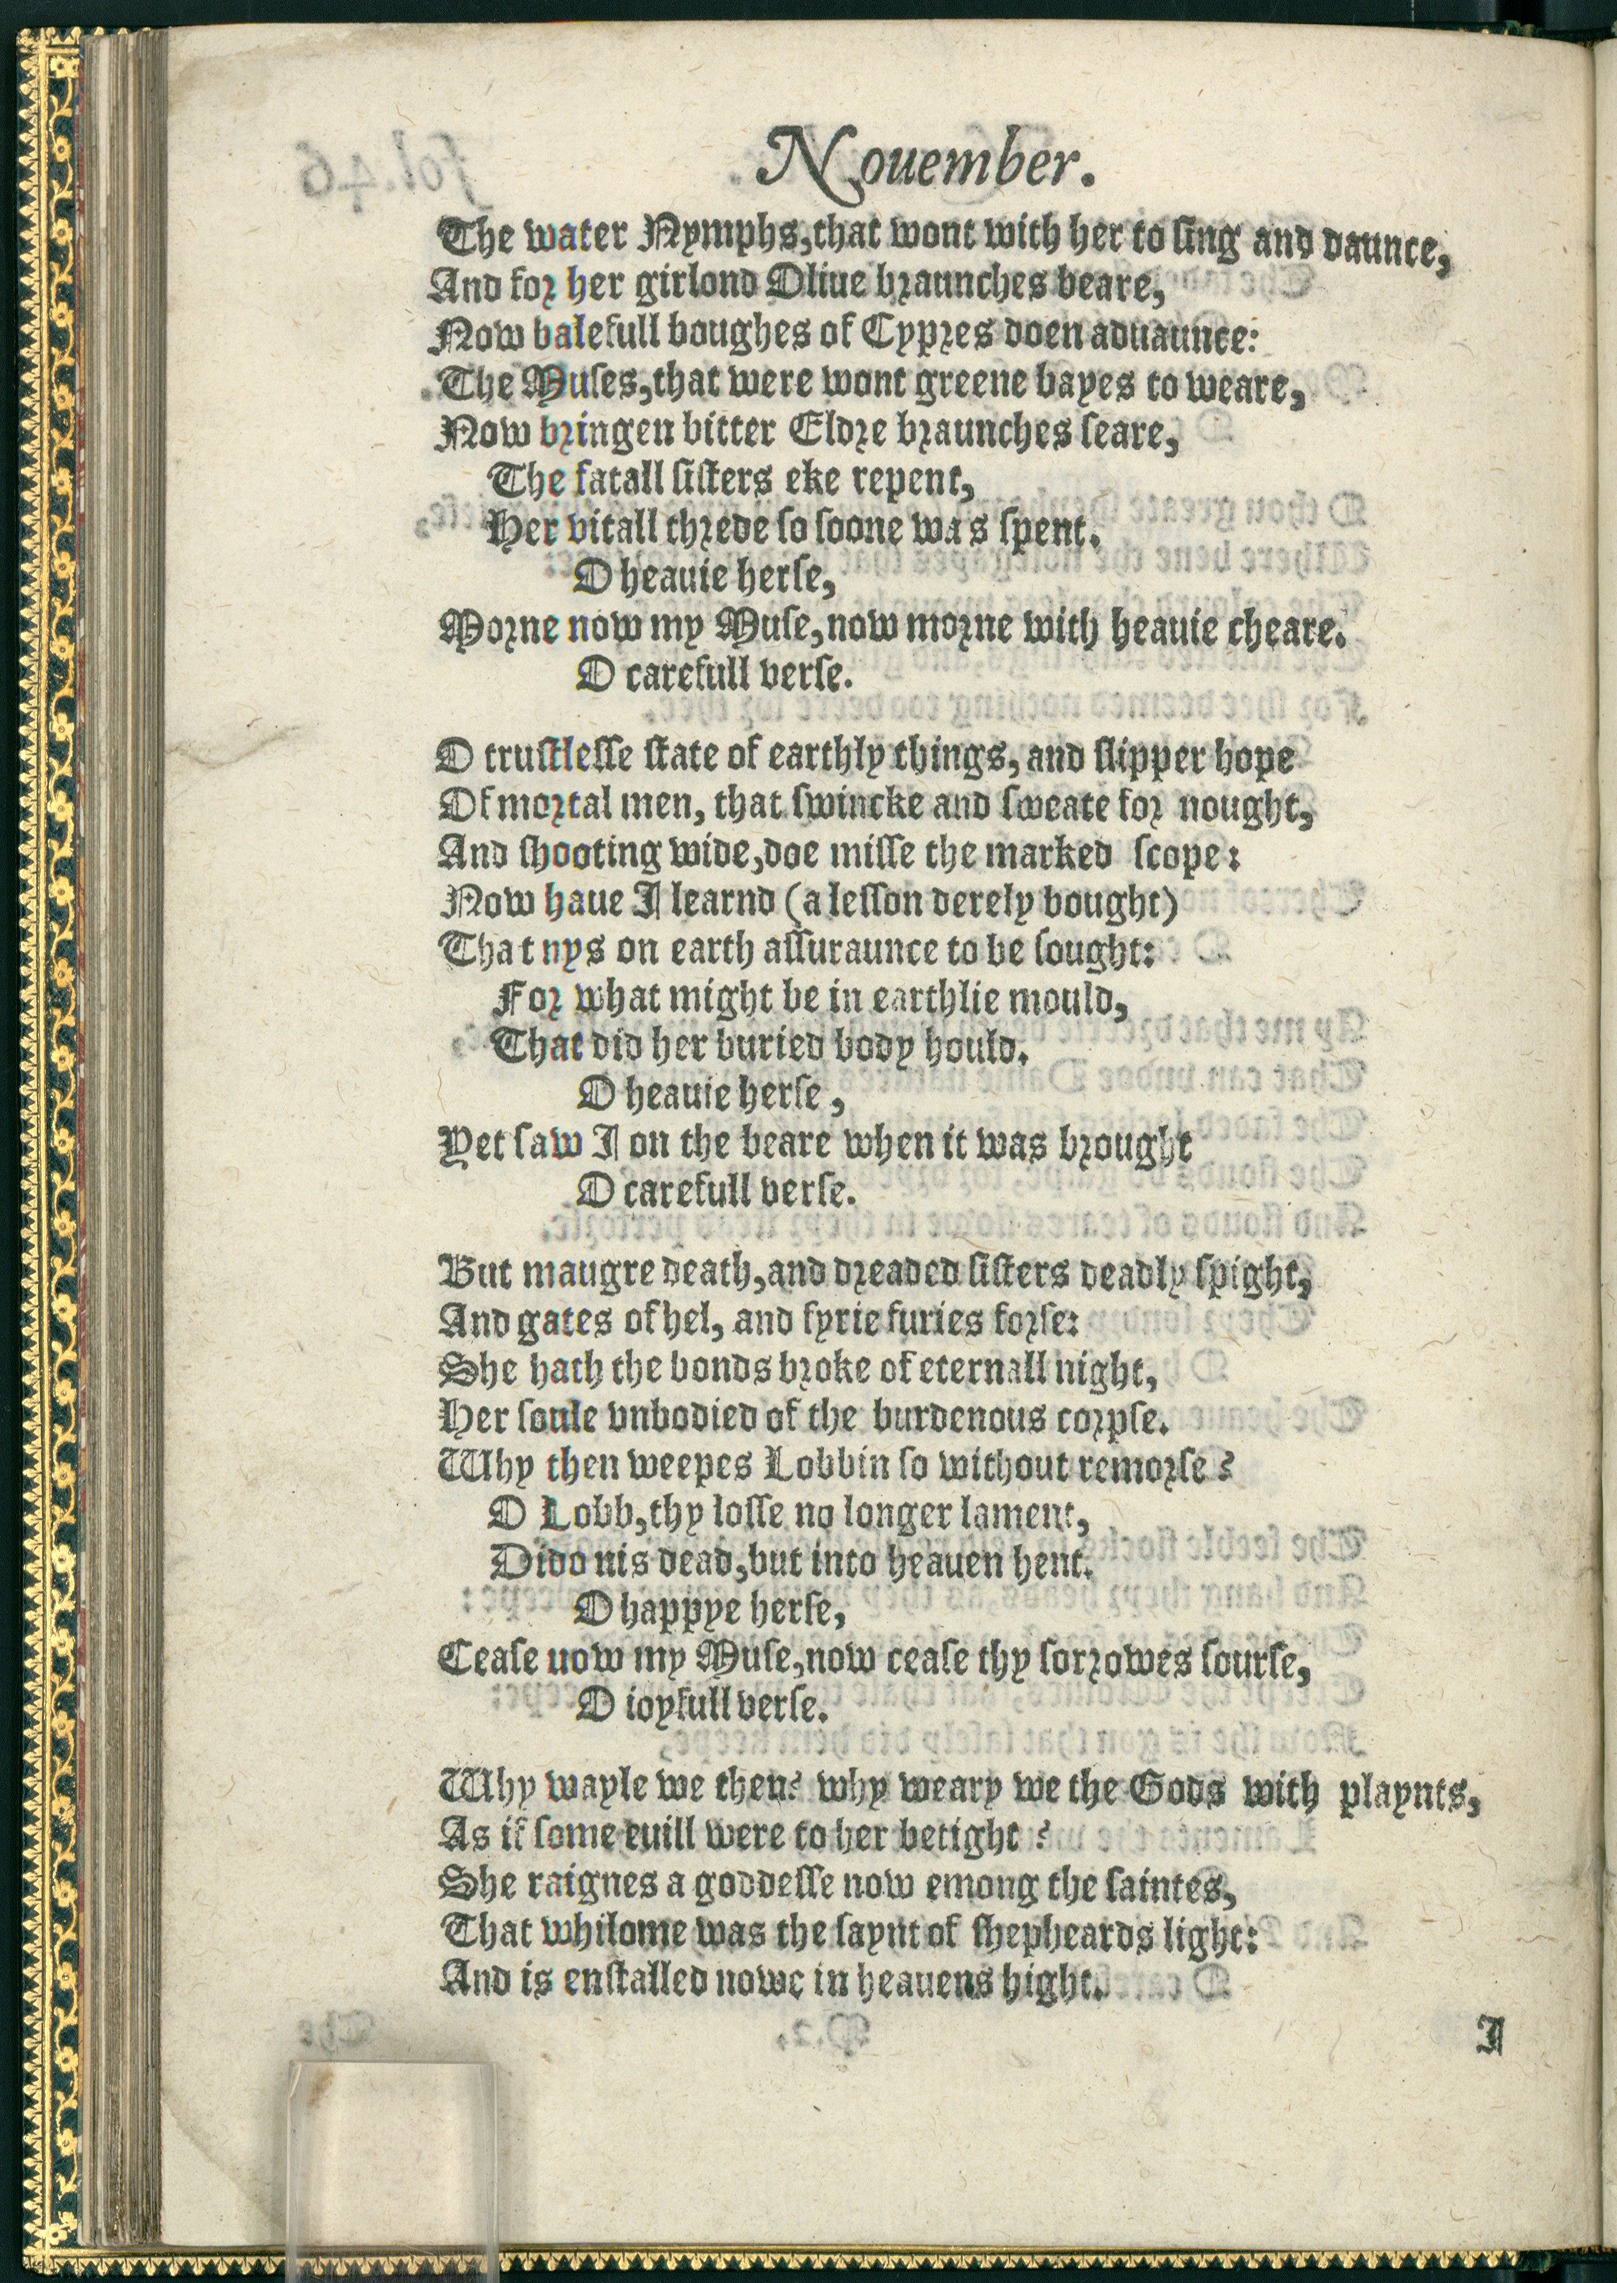 Nouember.
The water Nymphs, that wont with her to sing and daunce,
And for her girlond Oliue braunches beare,
Now balefull boughes of Cypres doen aduaunce:
The Muses, that were wont greene bayes to weare,
Now bringen bitter Eldre braunches seare,
The fatall sisters eke repent,
Her vitall threde so soone was spent.
O heauie herse,
Morne now my Muse, now morne with heauie cheare.
O carefull verse.
O trustlesse state of earthly things, and slipper hope
Of mortal men, that swincke and sweate for nought,
And shooting wide, doe misse the marked scope:
Now haue I learnd (a lesson derely bought)
That nys on earth assuraunce to be sought:
For what might be in earthlie mould,
That did her buried body hould.
O heauie herse,
Yet saw I on the beare when it was brought
O carefull verse.
But maugre death, and dreaded sisters deadly spight,
And gates of hel, and fyrie furies forse:
She hath the bonds broke of eternall night,
Her soule vnbodied of the burdenous corpse.
Why then weepes Lobbin so without remorse?
O Lobb, thy losse no longer lament,
Dido nis dead, but into heauen hent.
O happye herse,
Cease uow my Muse, now cease thy sorrowes sourse,
O ioyfull verse.
Why wayle we then? why weary we the Gods with playnts,
As if some euill were to her betight?
She raignes a goddesse now emong the saintes,
That whilome was the saynt of shepheards light:
And is enstalled nowe in heauens hight.
I